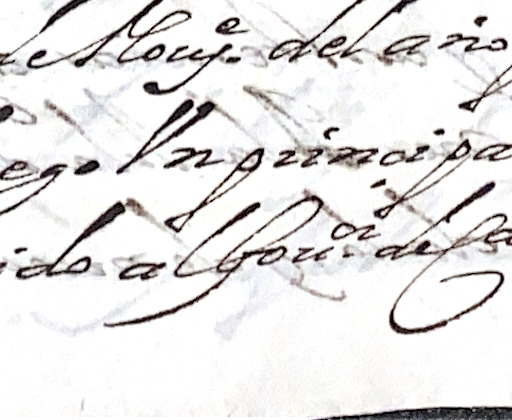 de Nouᵉ. del año
ego Un principa
ido al Gouᵒʳ. de Ca